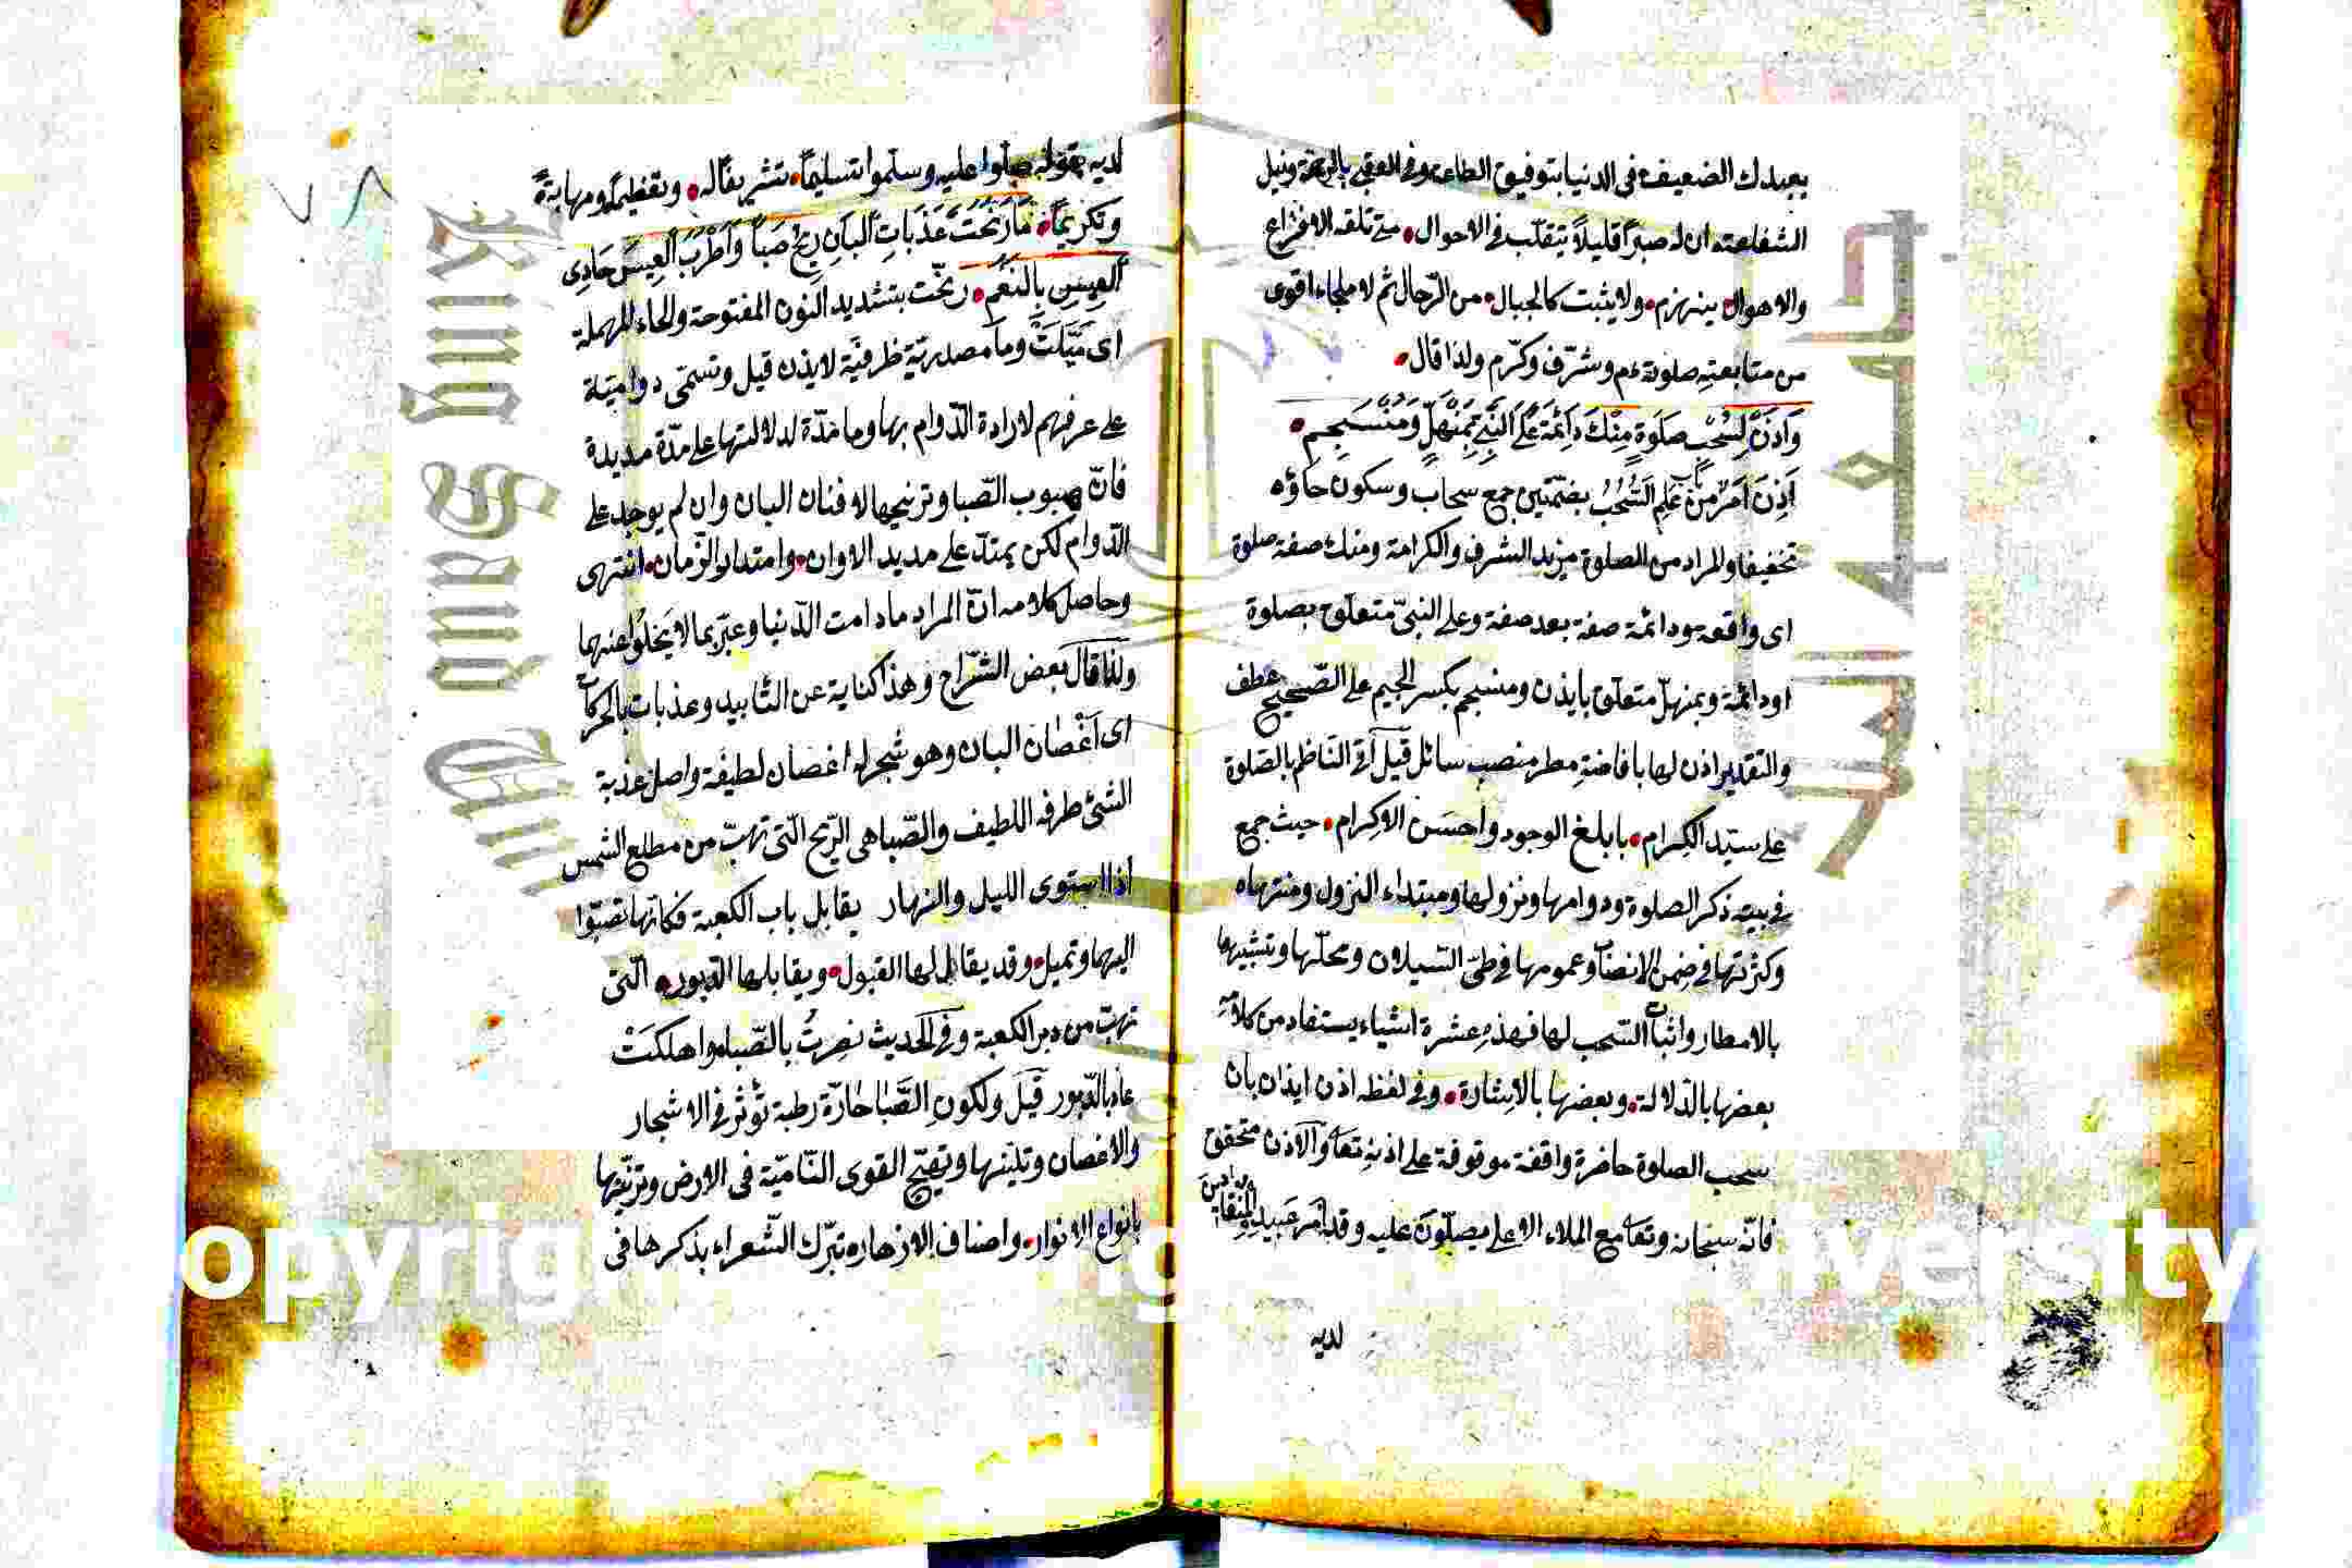 بعبدك الضعيف فى الدنيا بتوفيق الطاعة وفى العقبى بالرحمة ونيل
الشفاعة ان له صبرا قليلاً يتقلّب فى الاحوال متى تلقه الافزاع
والاهوال ينهزم ولا يثبت كالجبال من الرّجال ثم لا ملجاء اقوى
من متابعته وشرّف وكرّم ولذا قال
وَأذَنْ لِسُحْبِ صَلَوةٍ مِنْكَ دَائِمَةً عَلَى النَّبِىِّ بِمُنْهَلٍّ وَمُنْسَجِمِ
اَذِنَ اَمَرَ مِن بَاب عَلِمَ السُّحُبُ بضمّتين جمع سحاب وسكون حاؤه
تخفيفا والمراد من الصلوة مزيد الشرف والكرامة ومنك صفة صلوة
اى واقعة ودائمة صفة بعد صفة وعلى النبىّ متعلّق بصلوة
او دائمة وبمنهلّ متعلّق بايذن ومنسجم بكسر الجيم على الصّحيح عطف
والتقدير اذن لها بافاضةِ مطر منصب سائل قيل اتى النّاظم بالصّلوة
على سيّد الكِرام بابلغ الوجوه واحسن الاكرام حيث جمع
فى بيته ذكر الصلوة ودوامها ونزولها ومبتداء النزول ومنتهاه
وكثرتها فى ضمن الانصباب وعمومها فى طىّ السّيلان ومحلّها وتشبيهها
بالامطار واثبات السّحب لها فهذهِ عشرة اشياء يستفاد من كلامه
بعضها بالدّلالة وبعضها بالاشارة وفى لفظه اذن ايذان بان
سحب الصلوة حاضرة واقفة موقوفة على اذنه تعا والاذن متحقق
فانّه سبحانه وتعا مع الملاء الاعلى يصلّون عليه وقد امر عبيده
لديه
لديه بقوله صلّوا عليه وسلّموا تسليماً تشريفاً له وتعظيماً ومهابةً
وتكريماً مَا رَنّحَتْ عَذَبَاتِ البَانِ رِيحُ صَباً وَاَطْرَبَ العِيسَ حَادِى
العِيسِ بِالنَّغَمِ رنّحت بتشديد النّون المفتوحة والحاء المهملة
اى مَيَّلَتْ وما مصدريّة ظرفيّة لايذن قيل وتسمّى دواميّة
على عرفهم لارادة الدّوام بها وما مدّة لدلالتها على مدّة مديدة
فانّ هبوب الصّبا وترنيحها لافنان البان وان لم يوجد على
الدّوام لكن يمتدّ على مديد الاوان وامتداد الزّمان انتهى
وحاصل كلامه انّ المراد ما دامت الدّنيا وعبّر بما لا يخلوا عنهما
ولذا قال بعض الشرّاح وهذا كناية عن التّابيد وعذبات بالحركات
اى اَغْصان البان وهو شجر له اغصان لطيفة واصل عذبة
الشئ طرفه اللطيف والصّبا هى الرّيح الّتى تهبّ من مطلع الشمس
اذا استوى الليل والنهار يقابل باب الكعبة فكانّها تصبّوا
اليها وتميل وقد يقال لها القبول ويقابلها الدّبور الّتى
تهبّ من دبر الكعبة وفى الحديث نصرتُ بالصّبا واهلكتْ
عاد بالدّبور قيل ولكون الصَّبا حارّة رطبة تؤثر فى الاشجار
والاغصان وتليّنها وتهيّج القوى النّاميّة فى الارض وتزيّنها
بانواع الانوار واصناف الازهار تبرّك الشّعراء بذكرها فى